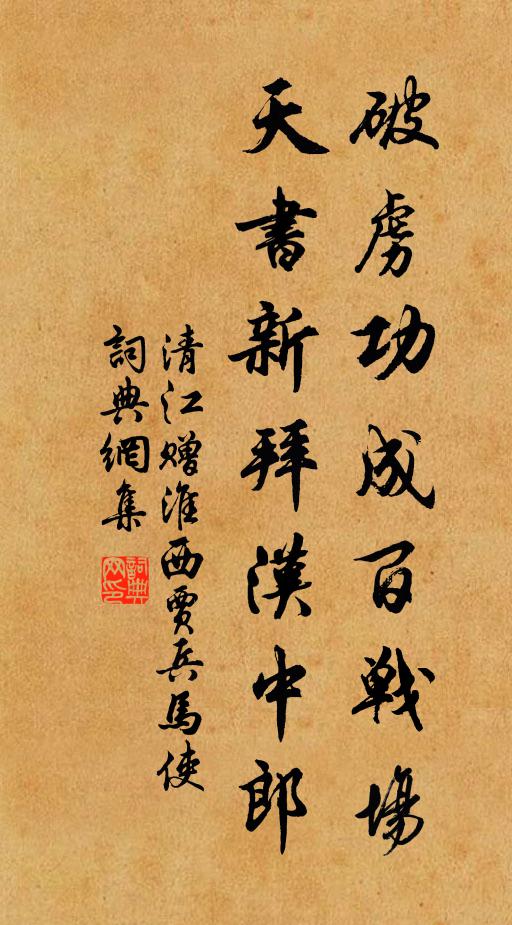 破虜功成百戰場
天書新拜漢中郎
清江贈淮西賈兵馬使
詞典網集
詞典网印